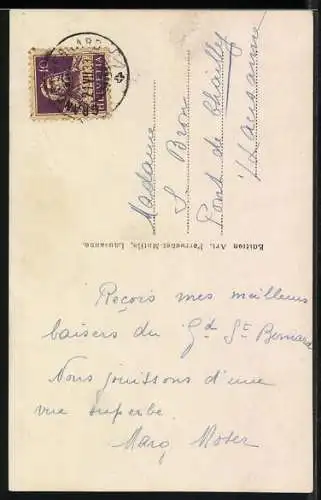 10
HELVETIA
Madame
S. Bron
Pont de Chailly
s/Lausanne
Edition Art. Perrochet-Matile, Lausanne.
Reçois mes meilleurs
baisers du Gd St Bernard
Nous jouissons d'une
vue superbe.
Marg Moser